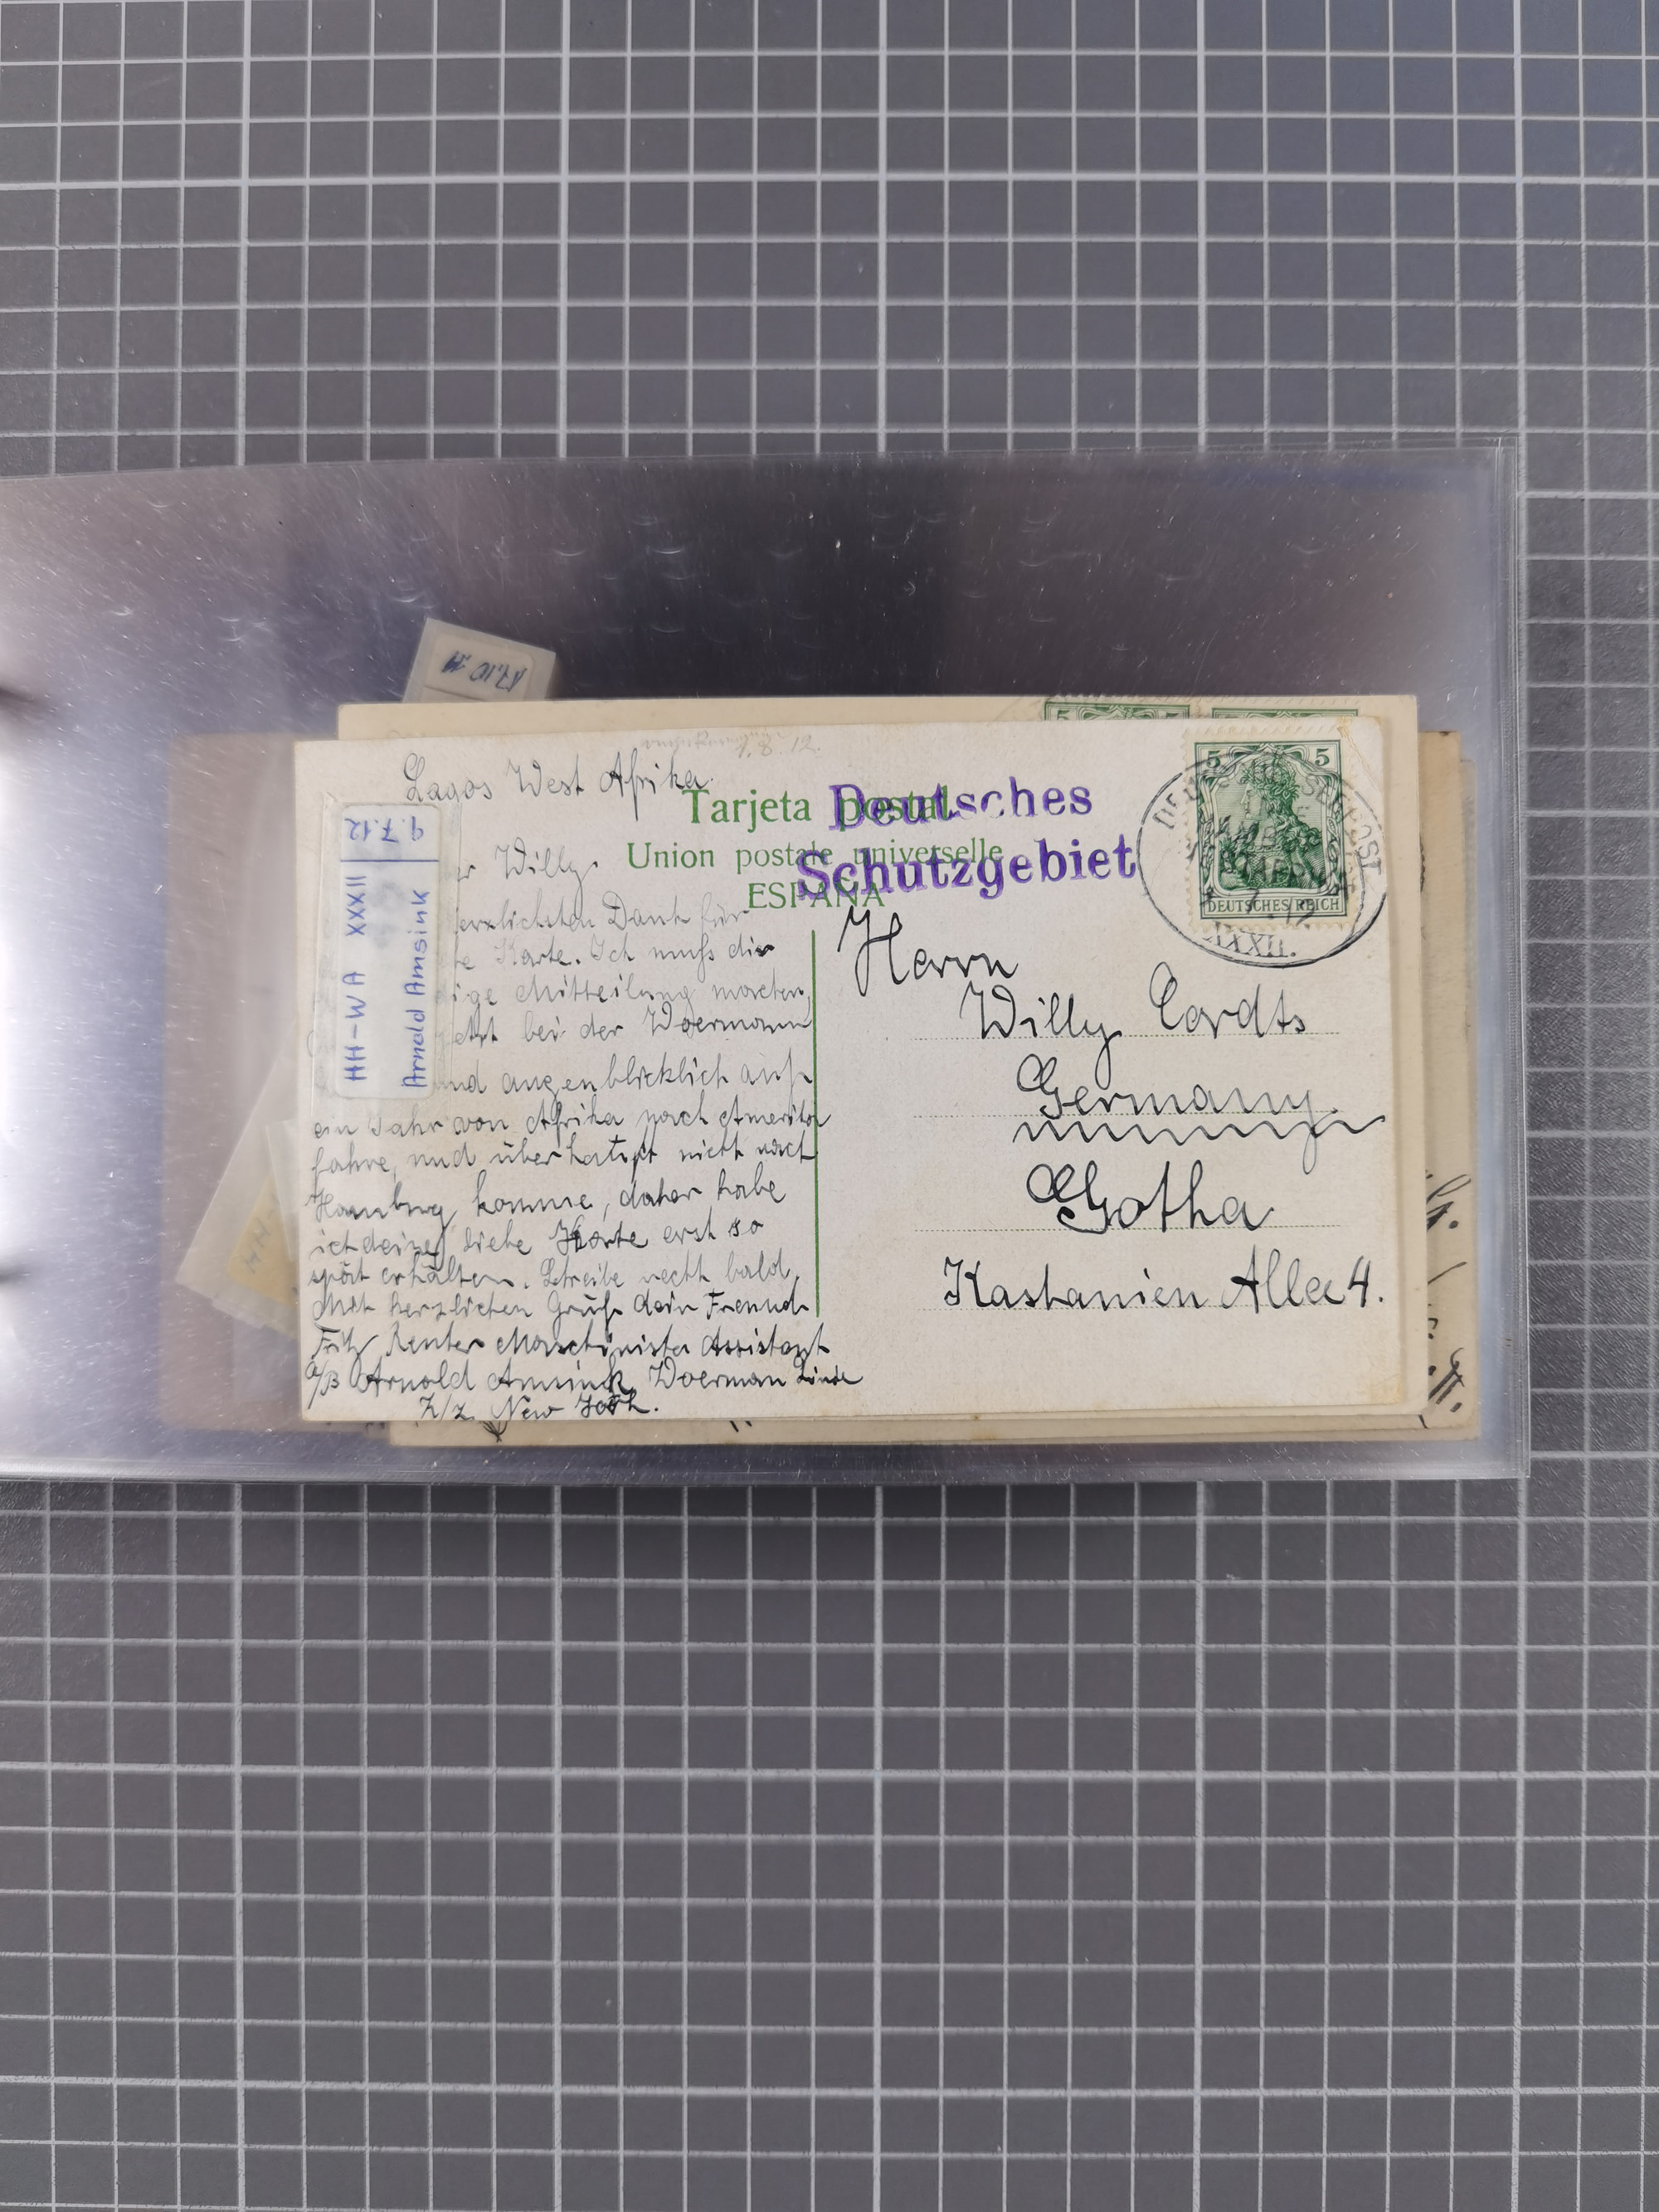 17.10.11
1.8.12.
Lagos West Afrika.
Tarjeta postal
Union postale universelle
ESPAÑA
Deutsches
Schutzgebiet
5 5
DEUTSCHES REICH
XXXII.
9.7.12
HH-WA XXXII
Arnold Amsink
Willy.
herzlichsten Dank für
Karte. Ich muß dir
Mitteilung machen,
jetzt bei der Woermann
und augenblicklich auf
ein Jahr von Afrika nach Amerika
fahre, und überhaupt nicht nach
Hamburg komme, daher habe
ich deine liebe Karte erst so
spät erhalten. Schreibe recht bald.
Mit herzlichen Gruß dein Freund
Fritz Renter Maschinisten Assistant
a/B Arnold Amsink, Woerman Linie
z/z. New York.
Herrn
Willy Cordts
Germany
Gotha
Kastanien Allee 4.